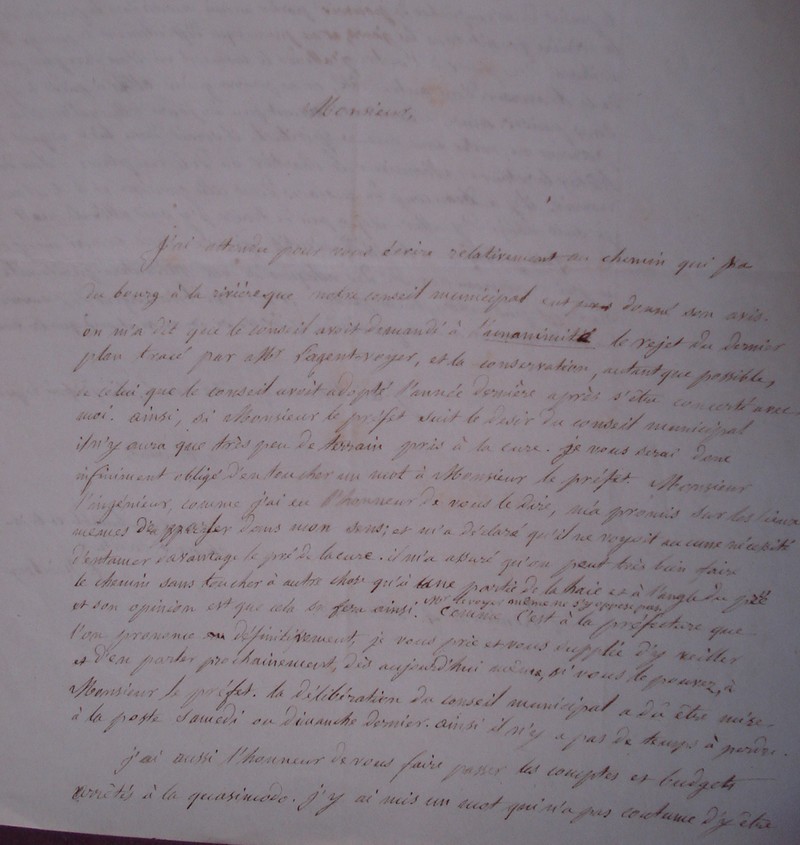 Monsieur,
J'ai attendu pour vous écrire relativement au chemin qui va
du bourg à la rivière, que notre conseil municipal eut donné son avis.
on m'a dit que le conseil avoit demandé à l'unanimité le rejet du dernier
plan tracé par Mr l'agent-voyer, et la conservation, autant que possible,
de celui que le conseil avoit adopté l'année dernière après s'être concerté avec
moi. ainsi, si Monsieur le préfet suit le desir du conseil municipal
il n'y aura que très peu de terrain pris à la cure. je vous serai donc
infiniment obligé d'en toucher un mot à Monsieur le préfet. Monsieur
l'ingénieur, comme j'ai eu l'honneur de vous le dire, m'a promis sur les lieux
mêmes de dans mon sens, et m'a déclaré qu'il ne voyoit aucune nécessité
d'entamer davantage le pré de la cure. il m'a assuré qu'on peut très bien faire
le chemin sans toucher à autre chose qu'à une partie de la haie et à l'angle du pré
et son opinion est que cela se fera ainsi. Mr le voyer même ne s'y oppose pas. comme c'est à la préfecture que
l'on prononce définitivement, je vous prie et vous supplie d'y veiller
et d'en parler prochainement, dès aujourd'hui même, si vous le pouvez, à
Monsieur le préfet. la délibération du conseil municipal a dû être mise
à la poste samedi ou dimanche dernier. ainsi il n'y a pas de temps à perdre.
j'ai aussi l'honneur de vous faire passer les comptes et budgets
arrêtés à la quasimodo. j'y ai mis un mot qui n'a pas coutume d'y être